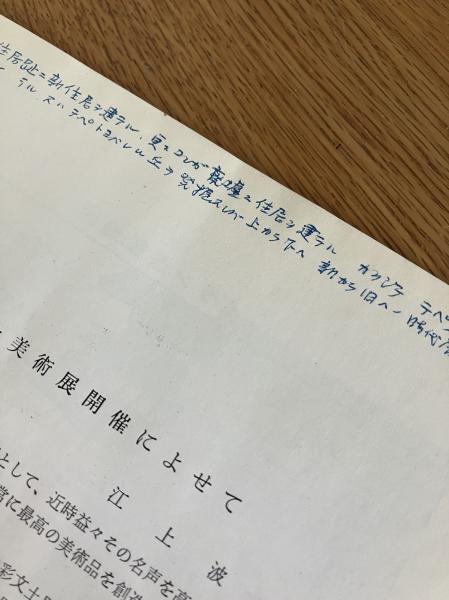 住居趾ニ新住居ヲ建テル、更ニコレガ廃墟ニ住居ヲ建テル カクシテ テペ
テル スハ テペトヨバレル丘ヲ発掘スレバ上から下へ 新から旧へノ時代
美術展開催によせて
江上波
として、近時益々その名声を高
常に最高の美術品を創造
彩文土